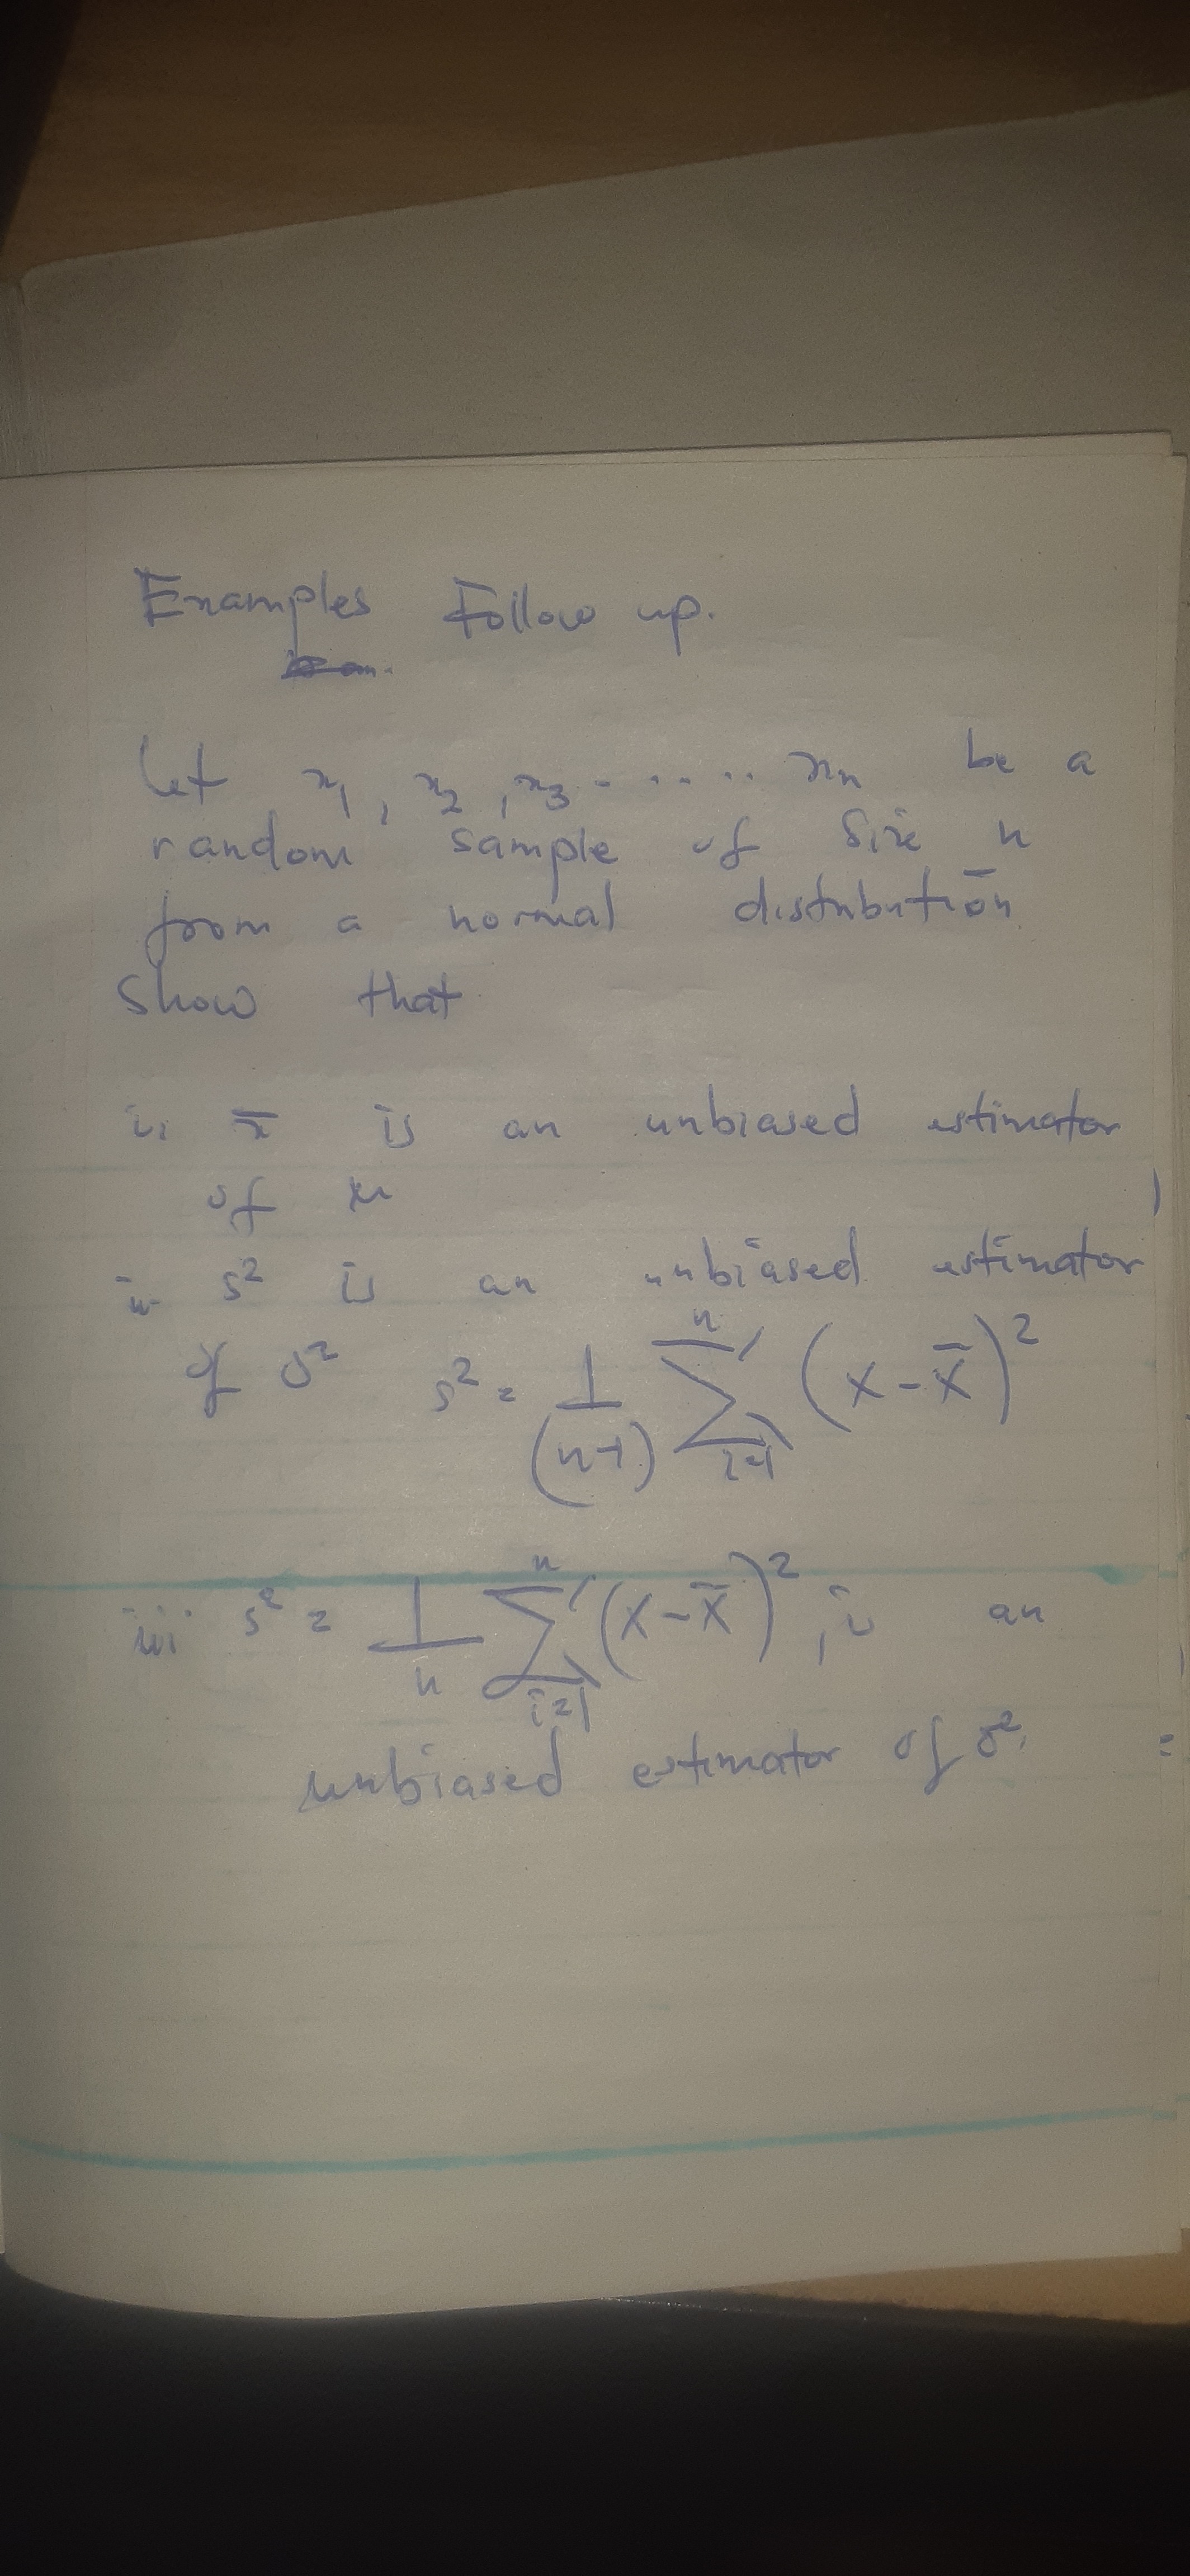 Examples Follow up.
Let x₁, x₂, x₃ - ..... xₙ be a
random sample of size n
from a normal distribution
Show that
i, x̄ is an unbiased estimator
of μ
ii s² is an unbiased estimator
of σ² s² = 1/(n-1) ∑ⁿᵢ₌₁ (x - x̄)²
iii s² = 1/n ∑ⁿᵢ₌₁ (x - x̄)², is an
unbiased estimator of σ².